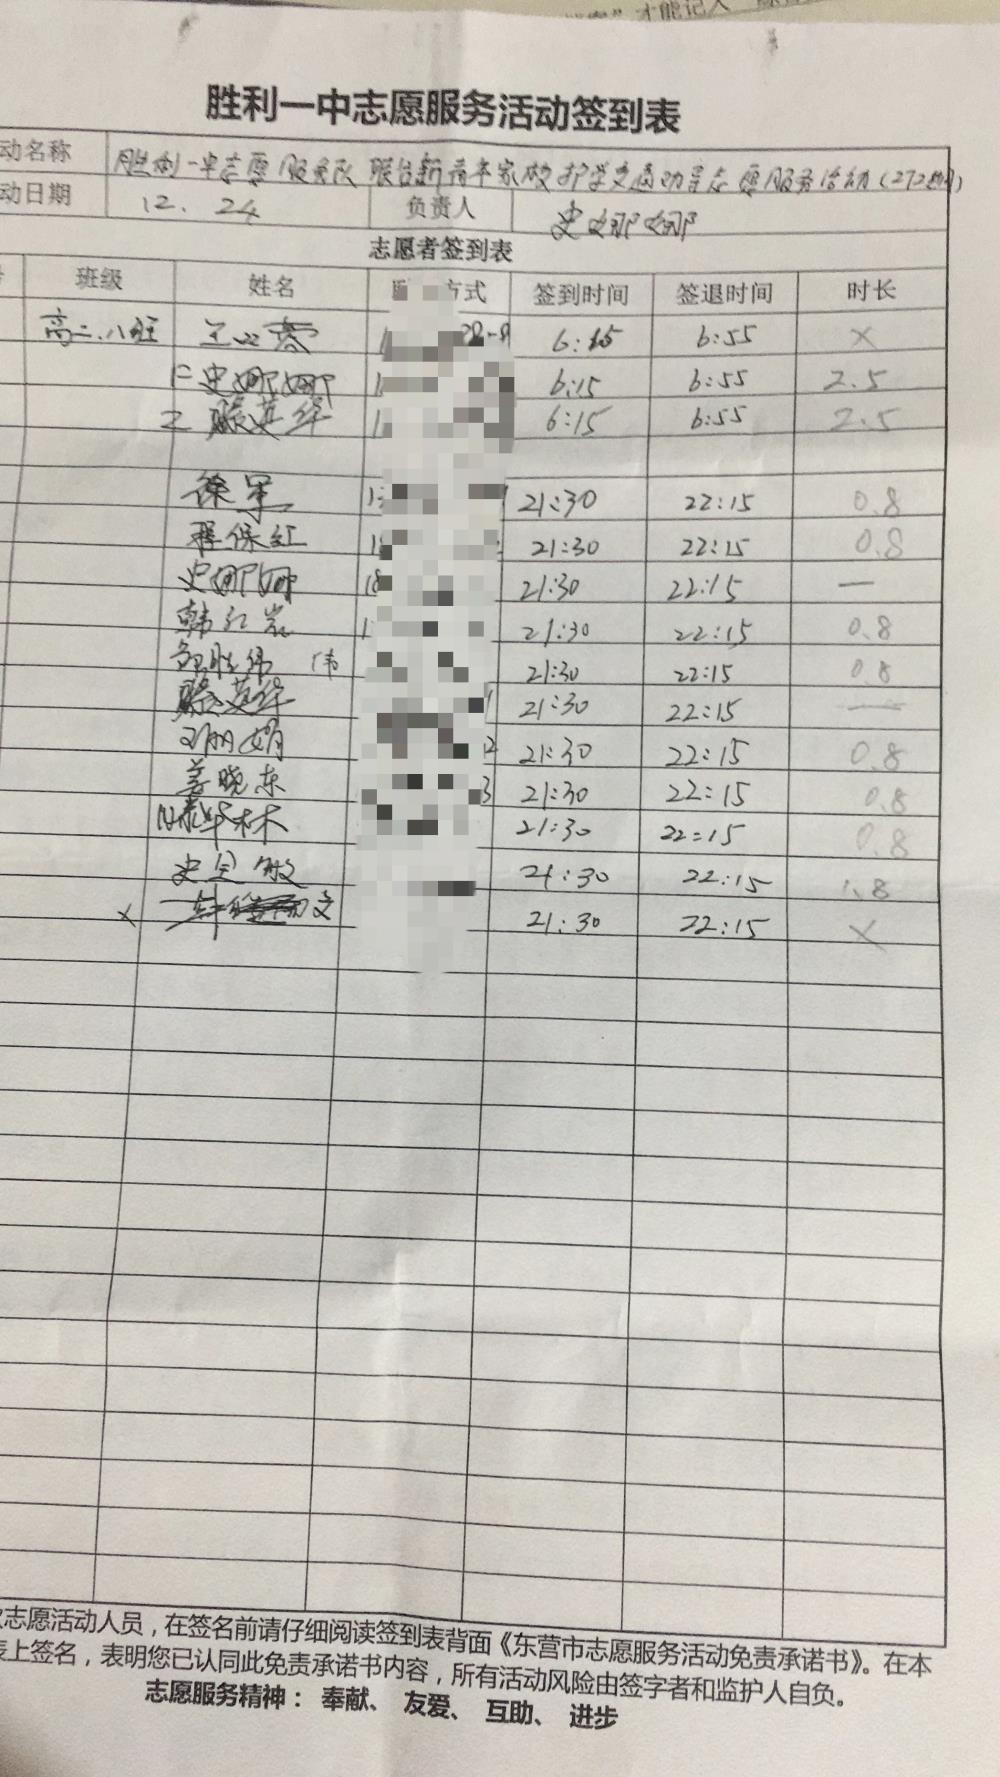 才能记入
胜利一中志愿服务活动签到表
动名称 胜利一中志愿服务队联合新青年家校护学交通劝导志愿服务活动(272期)
动日期 12.24 负责人 史娜娜
志愿者签到表
班级 姓名 方式 签到时间 签退时间 时长
高二.八班 6:15 6:55 ×
史娜娜 6:15 6:55 2.5
滕英华 6:15 6:55 2.5
徐军 21:30 22:15 0.8
程保红 21:30 22:15 0.8
史娜娜 18 21:30 22:15 —
韩红岩 21:30 22:15 0.8
胜伟 伟 21:30 22:15 0.8
滕英华 21:30 22:15 —
21:30 22:15 0.8
姜晓东 3 21:30 22:15 0.8
华林 21:30 22:15 0.8
21:30 22:15 1.8
× 21:30 22:15 ×
志愿活动人员，在签名前请仔细阅读签到表背面《东营市志愿服务活动免责承诺书》。在本
表上签名，表明您已认同此免责承诺书内容，所有活动风险由签字者和监护人自负。
志愿服务精神：奉献、友爱、互助、进步